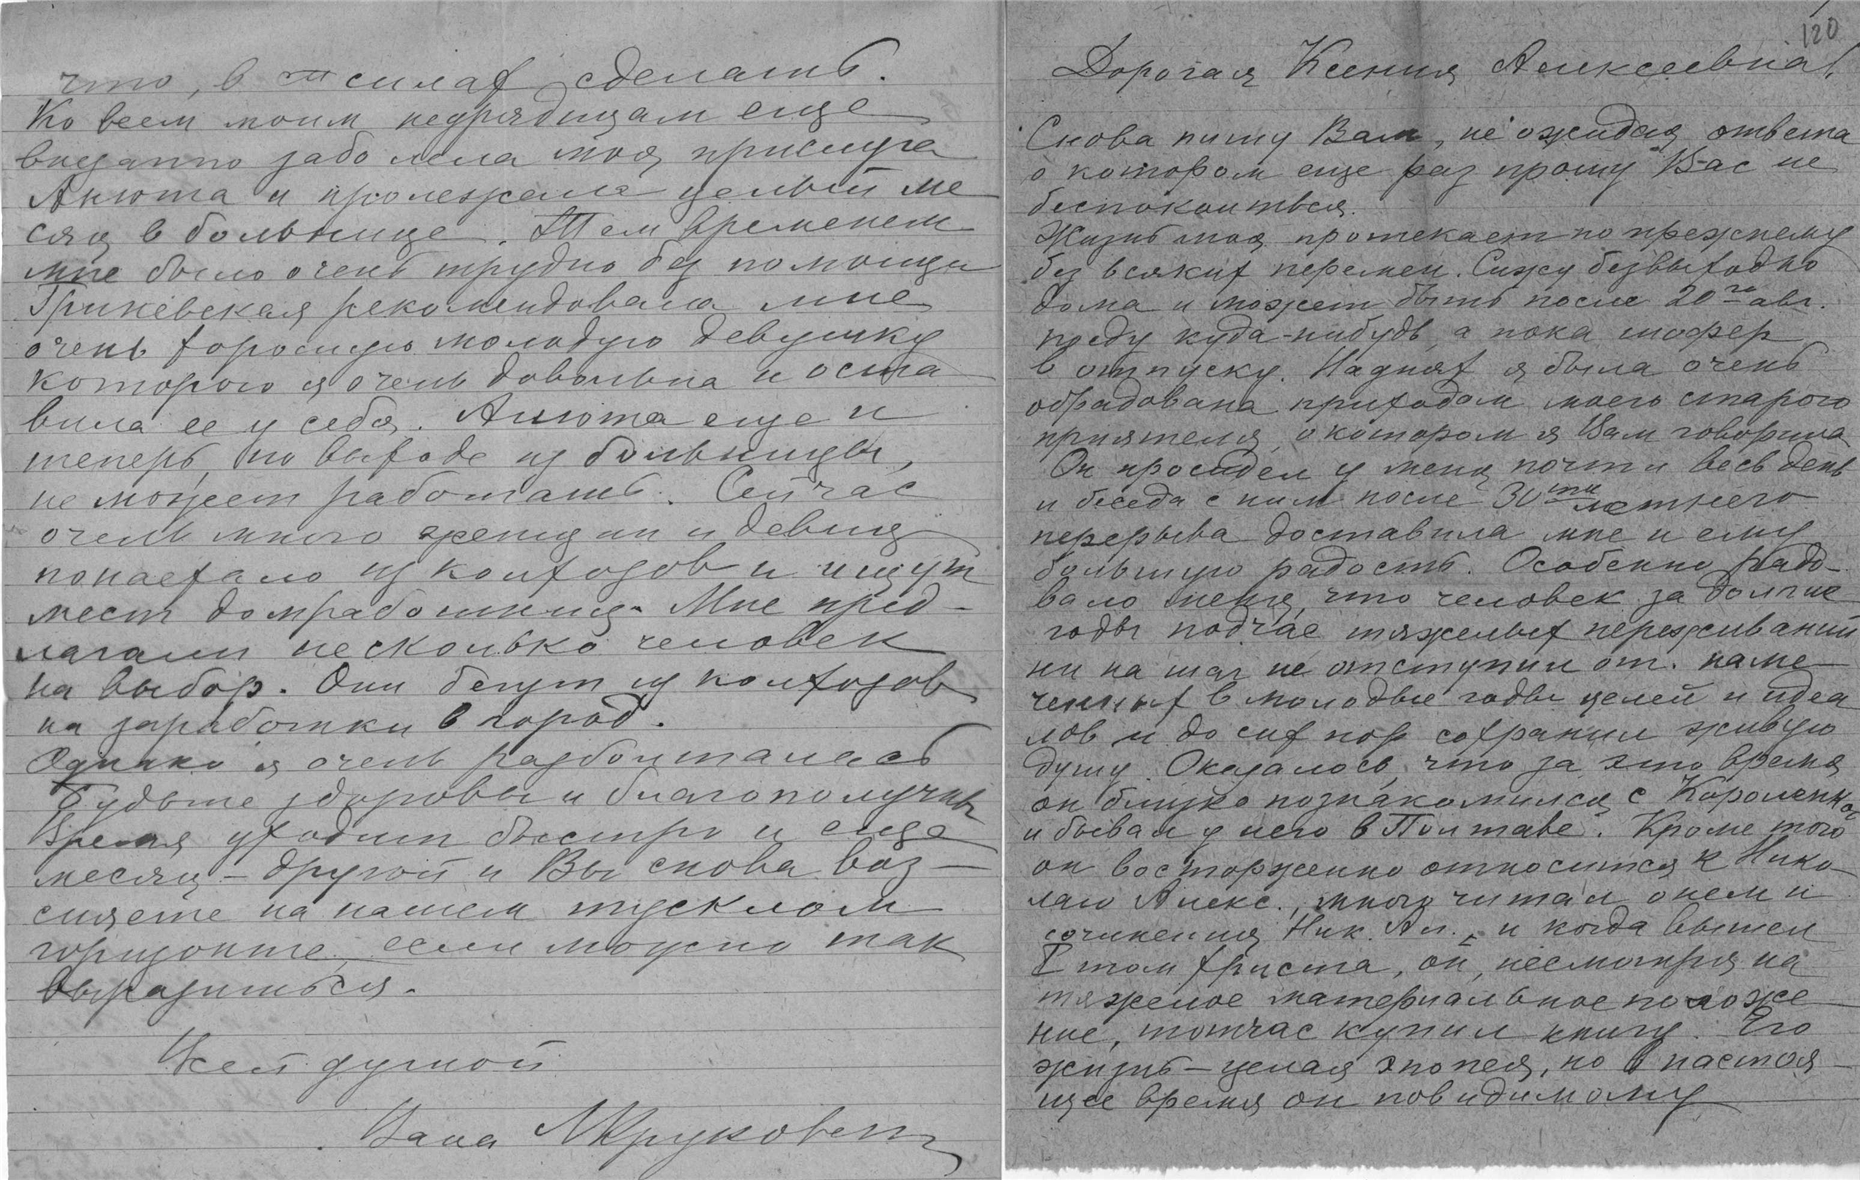 120
Дорогая Ксения Алексеевна!
Снова пишу Вам, не ожидая ответа
о котором еще раз прошу Вас не
беспокоиться.
Жизнь моя протекает по прежнему
без всяких перемен. Сижу безвыходно
дома и может быть после 20го авг.
поеду куда-нибудь, а пока шофер
в отпуску. Наднях я была очень
обрадована приходом моего старого
приятеля, о котором я Вам говорила
Он просидел у меня почти весь день
и беседа с ним после 30ти летнего
перерыва доставила мне и ему
большую радость. Особенно радо-
вало меня, что человек за долгие
годы подчас тяжелых переживаний
ни на шаг не отступил от наме-
ченных в молодые годы целей и идеа
лов и до сих пор сохранил живую
душу. Оказалось, что за это время
он близко познакомился с Короленко
и бывал у него в Полтаве. Кроме того
он восторженно относится к Нико-
лаю Алекс., много читал о нем и
сочинения Ник. Ал., и когда вышел
I том Христа, он, несмотря на
тяжелое материальное положе-
ние, тотчас купил книгу. Его
жизнь – целая эпопея, но в настоя-
щее время он повидимому
что, в силах сделать.
Ко всем моим неурядицам еще
внезапно заболела моя прислуга
Анюта и пролежала целый ме
сяц в больнице. Тем временем
мне было очень трудно без помощи
Гриневская рекомендовала мне
очень хорошую молодую девушку
которою я очень довольна и оста
вила ее у себя. Анюта еще и
теперь, по выходе из больницы,
не может работать. Сейчас
очень много женщин и девиц
понаехало из колхозов и ищут
мест домработниц. Мне пред-
лагали несколько человек
на выбор. Они бегут из колхозов
на заработки в город.
Однако я очень разболталась
Будьте здоровы и благополучны
Время уходит быстро и еще
месяц – другой и Вы снова воз-
сияете на нашем тусклом
горизонте, если можно так
выразиться.
Всей душой
Ваша МКруковская